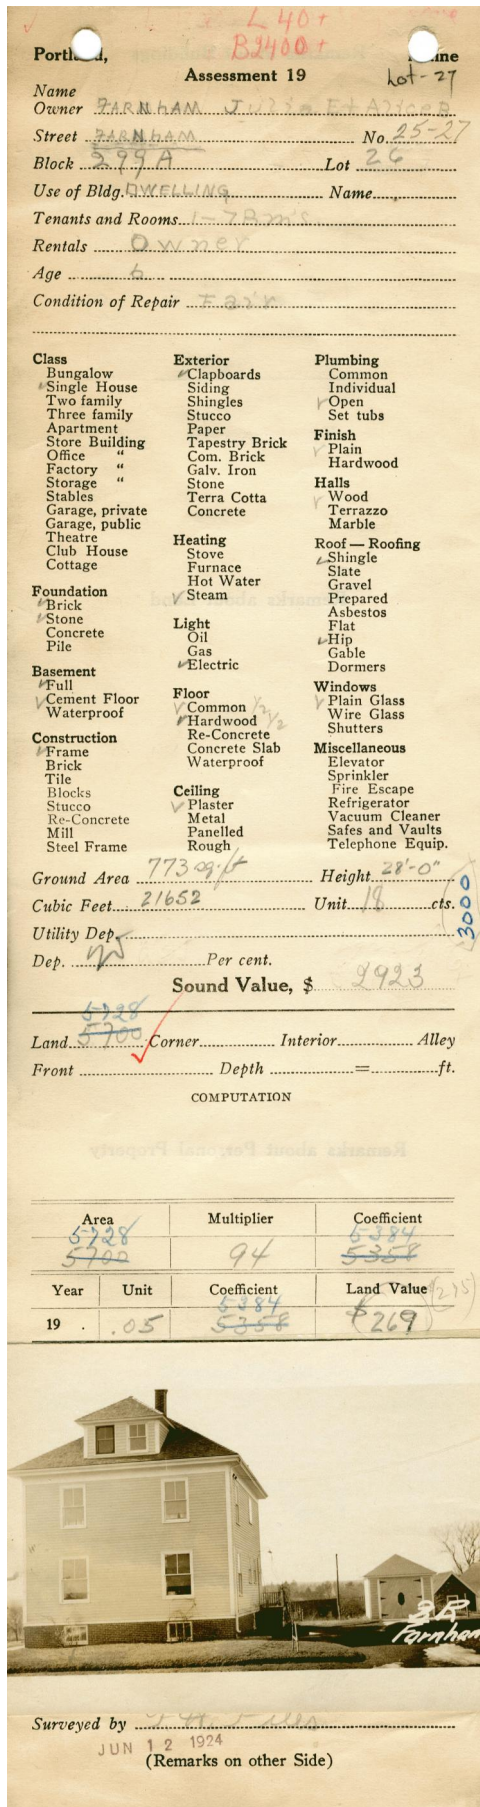 L 40+
B2400+
Portland, Maine
Assessment 19
Lot-27
Name
Owner FARNHAM Julia E + Alice B
Street FARNHAM No. 25-27
Block 299A Lot 26
Use of Bldg. DWELLING Name
Tenants and Rooms 1-7 Rms
Rentals Owner
Age 6
Condition of Repair Fair
Class
Bungalow
Single House
Two family
Three family
Apartment
Store Building
Office "
Factory "
Storage "
Stables
Garage, private
Garage, public
Theatre
Club House
Cottage
Foundation
Brick
Stone
Concrete
Pile
Basement
Full
Cement Floor
Waterproof
Construction
Frame
Brick
Tile
Blocks
Stucco
Re-Concrete
Mill
Steel Frame
Exterior
Clapboards
Siding
Shingles
Stucco
Paper
Tapestry Brick
Com. Brick
Galv. Iron
Stone
Terra Cotta
Concrete
Heating
Stove
Furnace
Hot Water
Steam
Light
Oil
Gas
Electric
Floor
Common 1/2
Hardwood 1/2
Re-Concrete
Concrete Slab
Waterproof
Ceiling
Plaster
Metal
Panelled
Rough
Plumbing
Common
Individual
Open
Set tubs
Finish
Plain
Hardwood
Halls
Wood
Terrazzo
Marble
Roof — Roofing
Shingle
Slate
Gravel
Prepared
Asbestos
Flat
Hip
Gable
Dormers
Windows
Plain Glass
Wire Glass
Shutters
Miscellaneous
Elevator
Sprinkler
Fire Escape
Refrigerator
Vacuum Cleaner
Safes and Vaults
Telephone Equip.
Ground Area 773 sq. ft Height 28'-0"
Cubic Feet 21652 Unit 18 cts.
3000
Utility Dep.
Dep. Per cent.
Sound Value, $ 2923
5728
Land 5700 Corner Interior Alley
Front Depth = ft.
COMPUTATION
Area Multiplier Coefficient
5728 5384
5700 94 5358
Year Unit Coefficient Land Value
5384 $275
19 . .05 5358 $269
3R
Farnham
Surveyed by
JUN 12 1924
(Remarks on other Side)